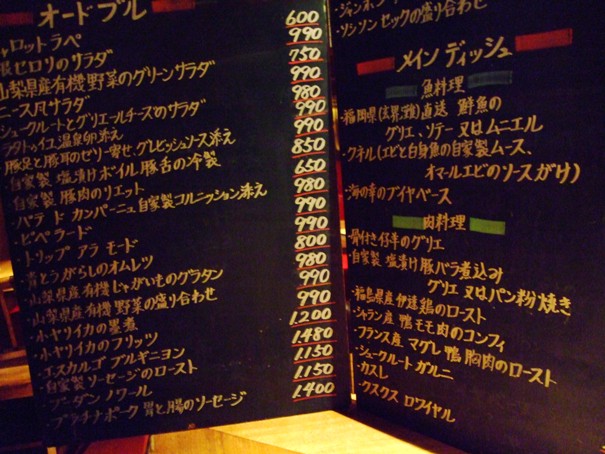 オードブル
キャロットラペ 600
セロリのサラダ 990
山梨県産有機野菜のグリーンサラダ 750
ニース風サラダ 990
シュークルートとグリエールチーズのサラダ 980
ラタトゥイユ温泉卵添え 990
豚足と豚耳のゼリー寄せ、グレビッシュソース添え 990
・自家製 塩漬けボイル豚舌の冷製 850
・自家製 豚肉のリエット 650
・パテ ド カンパーニュ自家製コルニッション添え 980
・ピペラード 990
・トリップ アラ モード 990
・青とうがらしのオムレツ 800
・山梨県産有機じゃがいものグラタン 980
・山梨県産有機 野菜の盛り合わせ 990
・小ヤリイカの墨煮 990
・小ヤリイカのフリッツ 1.200
・エスカルゴ ブルギニヨン 1.480
・自家製ソーセージのロースト 1.150
・ブーダン ノワール 1.150
・プラチナポーク 胃と腸のソーセージ 1.400
・ソシソン セックの盛り合わせ
メイン ディッシュ
魚料理
・福岡県(玄界灘)直送 鮮魚の
グリエ、ソテー 又はムニエル
・クネル(エビと白身魚の自家製ムース、
オマールエビのソースがけ)
・海の幸のブイヤベース
肉料理
・骨付き仔羊のグリエ
・自家製 塩漬け豚バラ煮込み
グリエ 又はパン粉焼き
・福島県産 伊達鶏のロースト
・シャラン産 鴨モモ肉のコンフィ
・フランス産 マグレ鴨 胸肉のロースト
・シュークルート ガルニ
・カスレ
・クスクス ロワイヤル